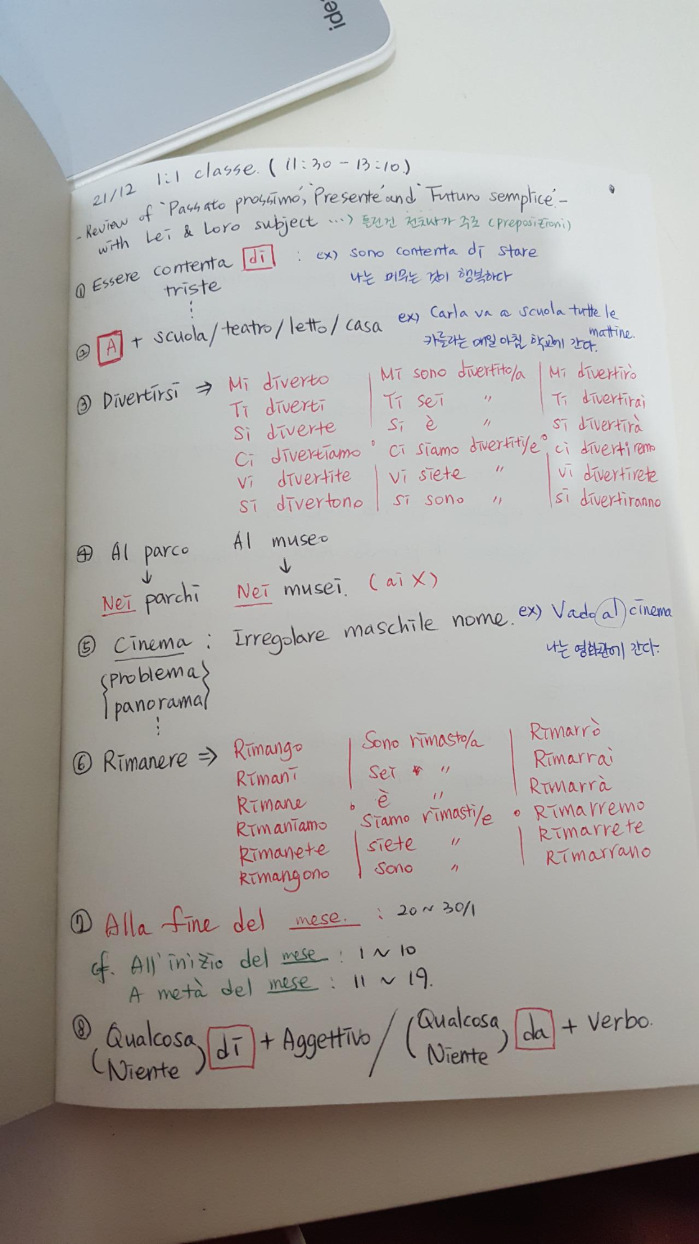 ide
21/12 1:1 classe. (11:30 - 13:10)
- Review of 'Passato prossimo', 'Presente' and 'Futuro semplice' -
with Lei & Loro subject ...> 전치사가 주로 (preposizioni)
① Essere contenta di : ex) sono contenta di stare
triste 나는 머무는 것이 행복하다
② A + scuola/teatro/letto/casa ex) Carla va a scuola tutte le mattine.
카를라는 매일 아침 학교에 간다.
③ Divertirsi ⇒ Mi diverto | Mi sono divertito/a | Mi divertirò
Ti diverti | Ti sei " | Ti divertirai
Si diverte | Si è " | si divertirà
Ci divertiamo ci siamo divertiti/e ci divertiremo
Vi divertite | Vi siete " | vi divertirete
Si divertono | si sono " | si divertiranno
④ Al parco Al museo
↓ ↓
Nei parchi Nei musei. (ai X)
⑤ Cinema : Irregolare maschile nome. ex) Vado al cinema
{problema} 나는 영화관에 간다.
{panorama}
⑥ Rimanere ⇒ Rimango | Sono rimasto/a | Rimarrò
Rimani | Sei " | Rimarrai
Rimane è " Rimarrà
Rimaniamo Siamo rimasti/e Rimarremo
Rimanete | siete " | Rimarrete
Rimangono | sono " | Rimarrano
⑦ Alla fine del mese. : 20 ~ 30/1
cf. All'inizio del mese : 1 ~ 10
A metà del mese : 11 ~ 19.
⑧ Qualcosa) di + Aggettivo / (Qualcosa) da + Verbo.
(Niente Niente